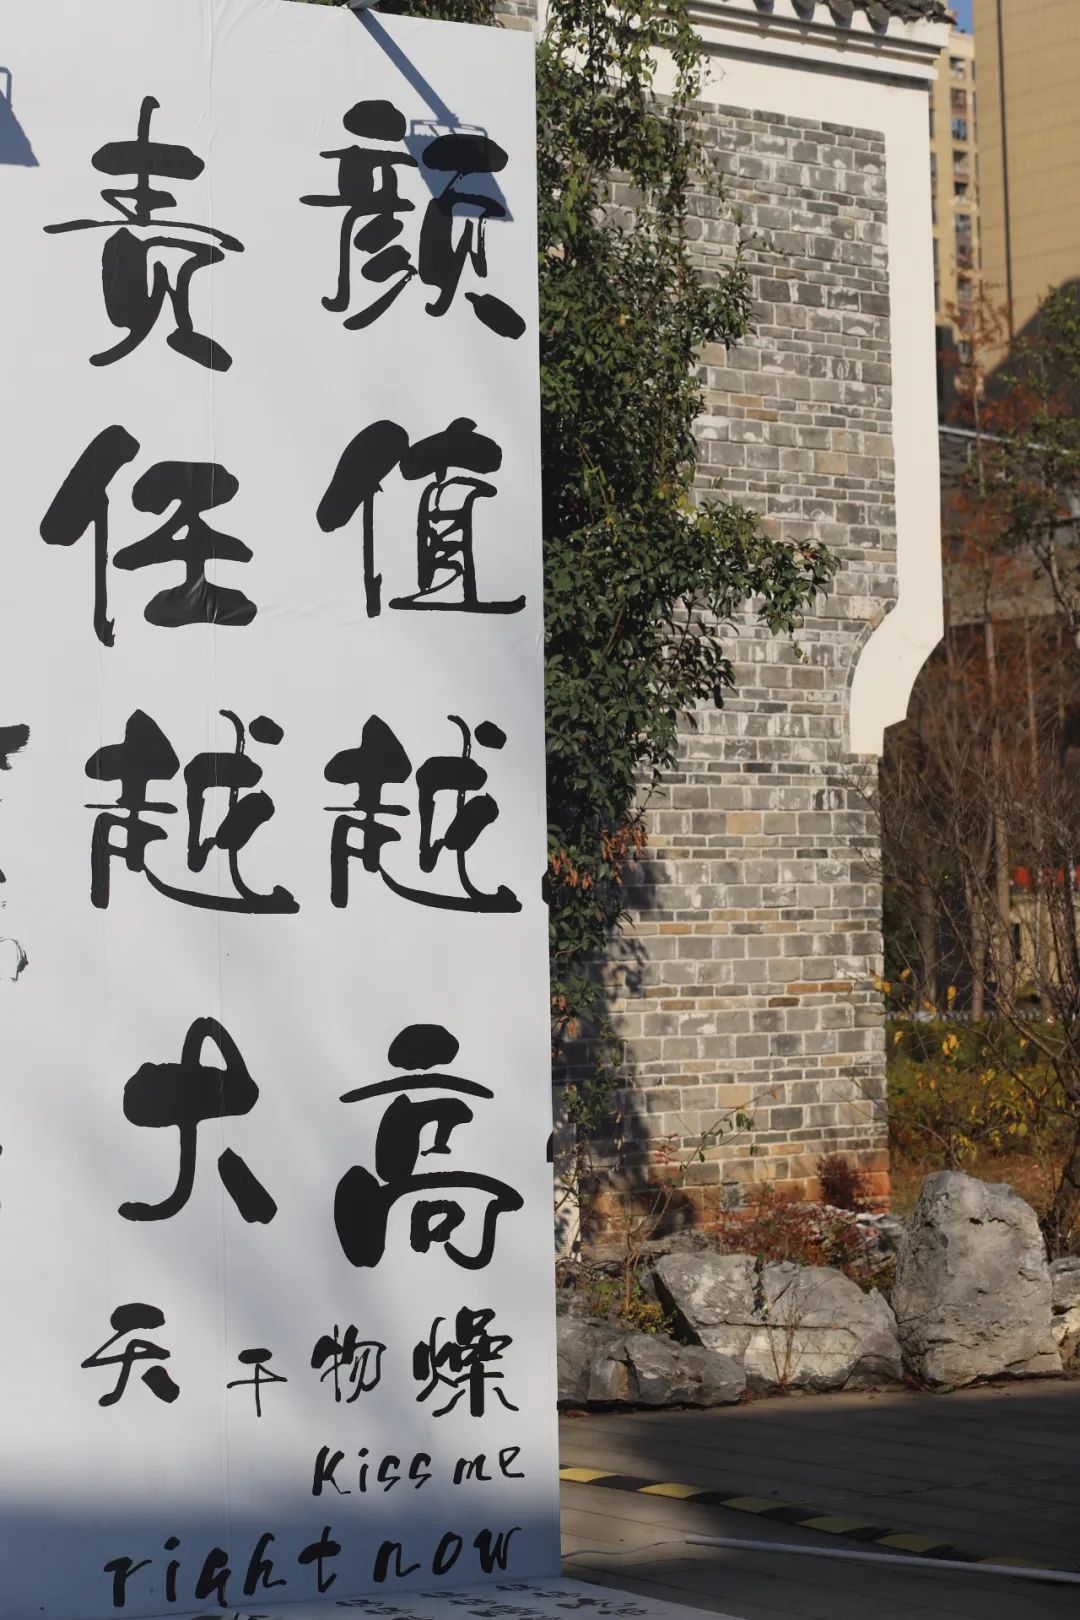 颜值越高
责任越大
天干物燥
Kiss me
right now